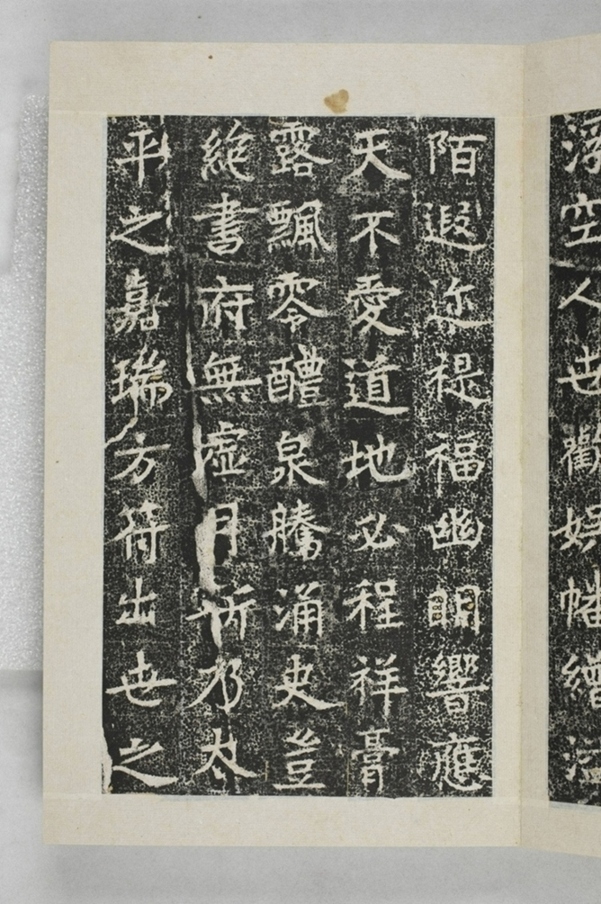 浮空人世歡娛幡繒
陌遐迩禔福幽眀響應
天不愛道地必程祥膏
露飄零醴泉騰涌史豈
絶書府無虛月斯乃太
平之嘉瑞方符出世之